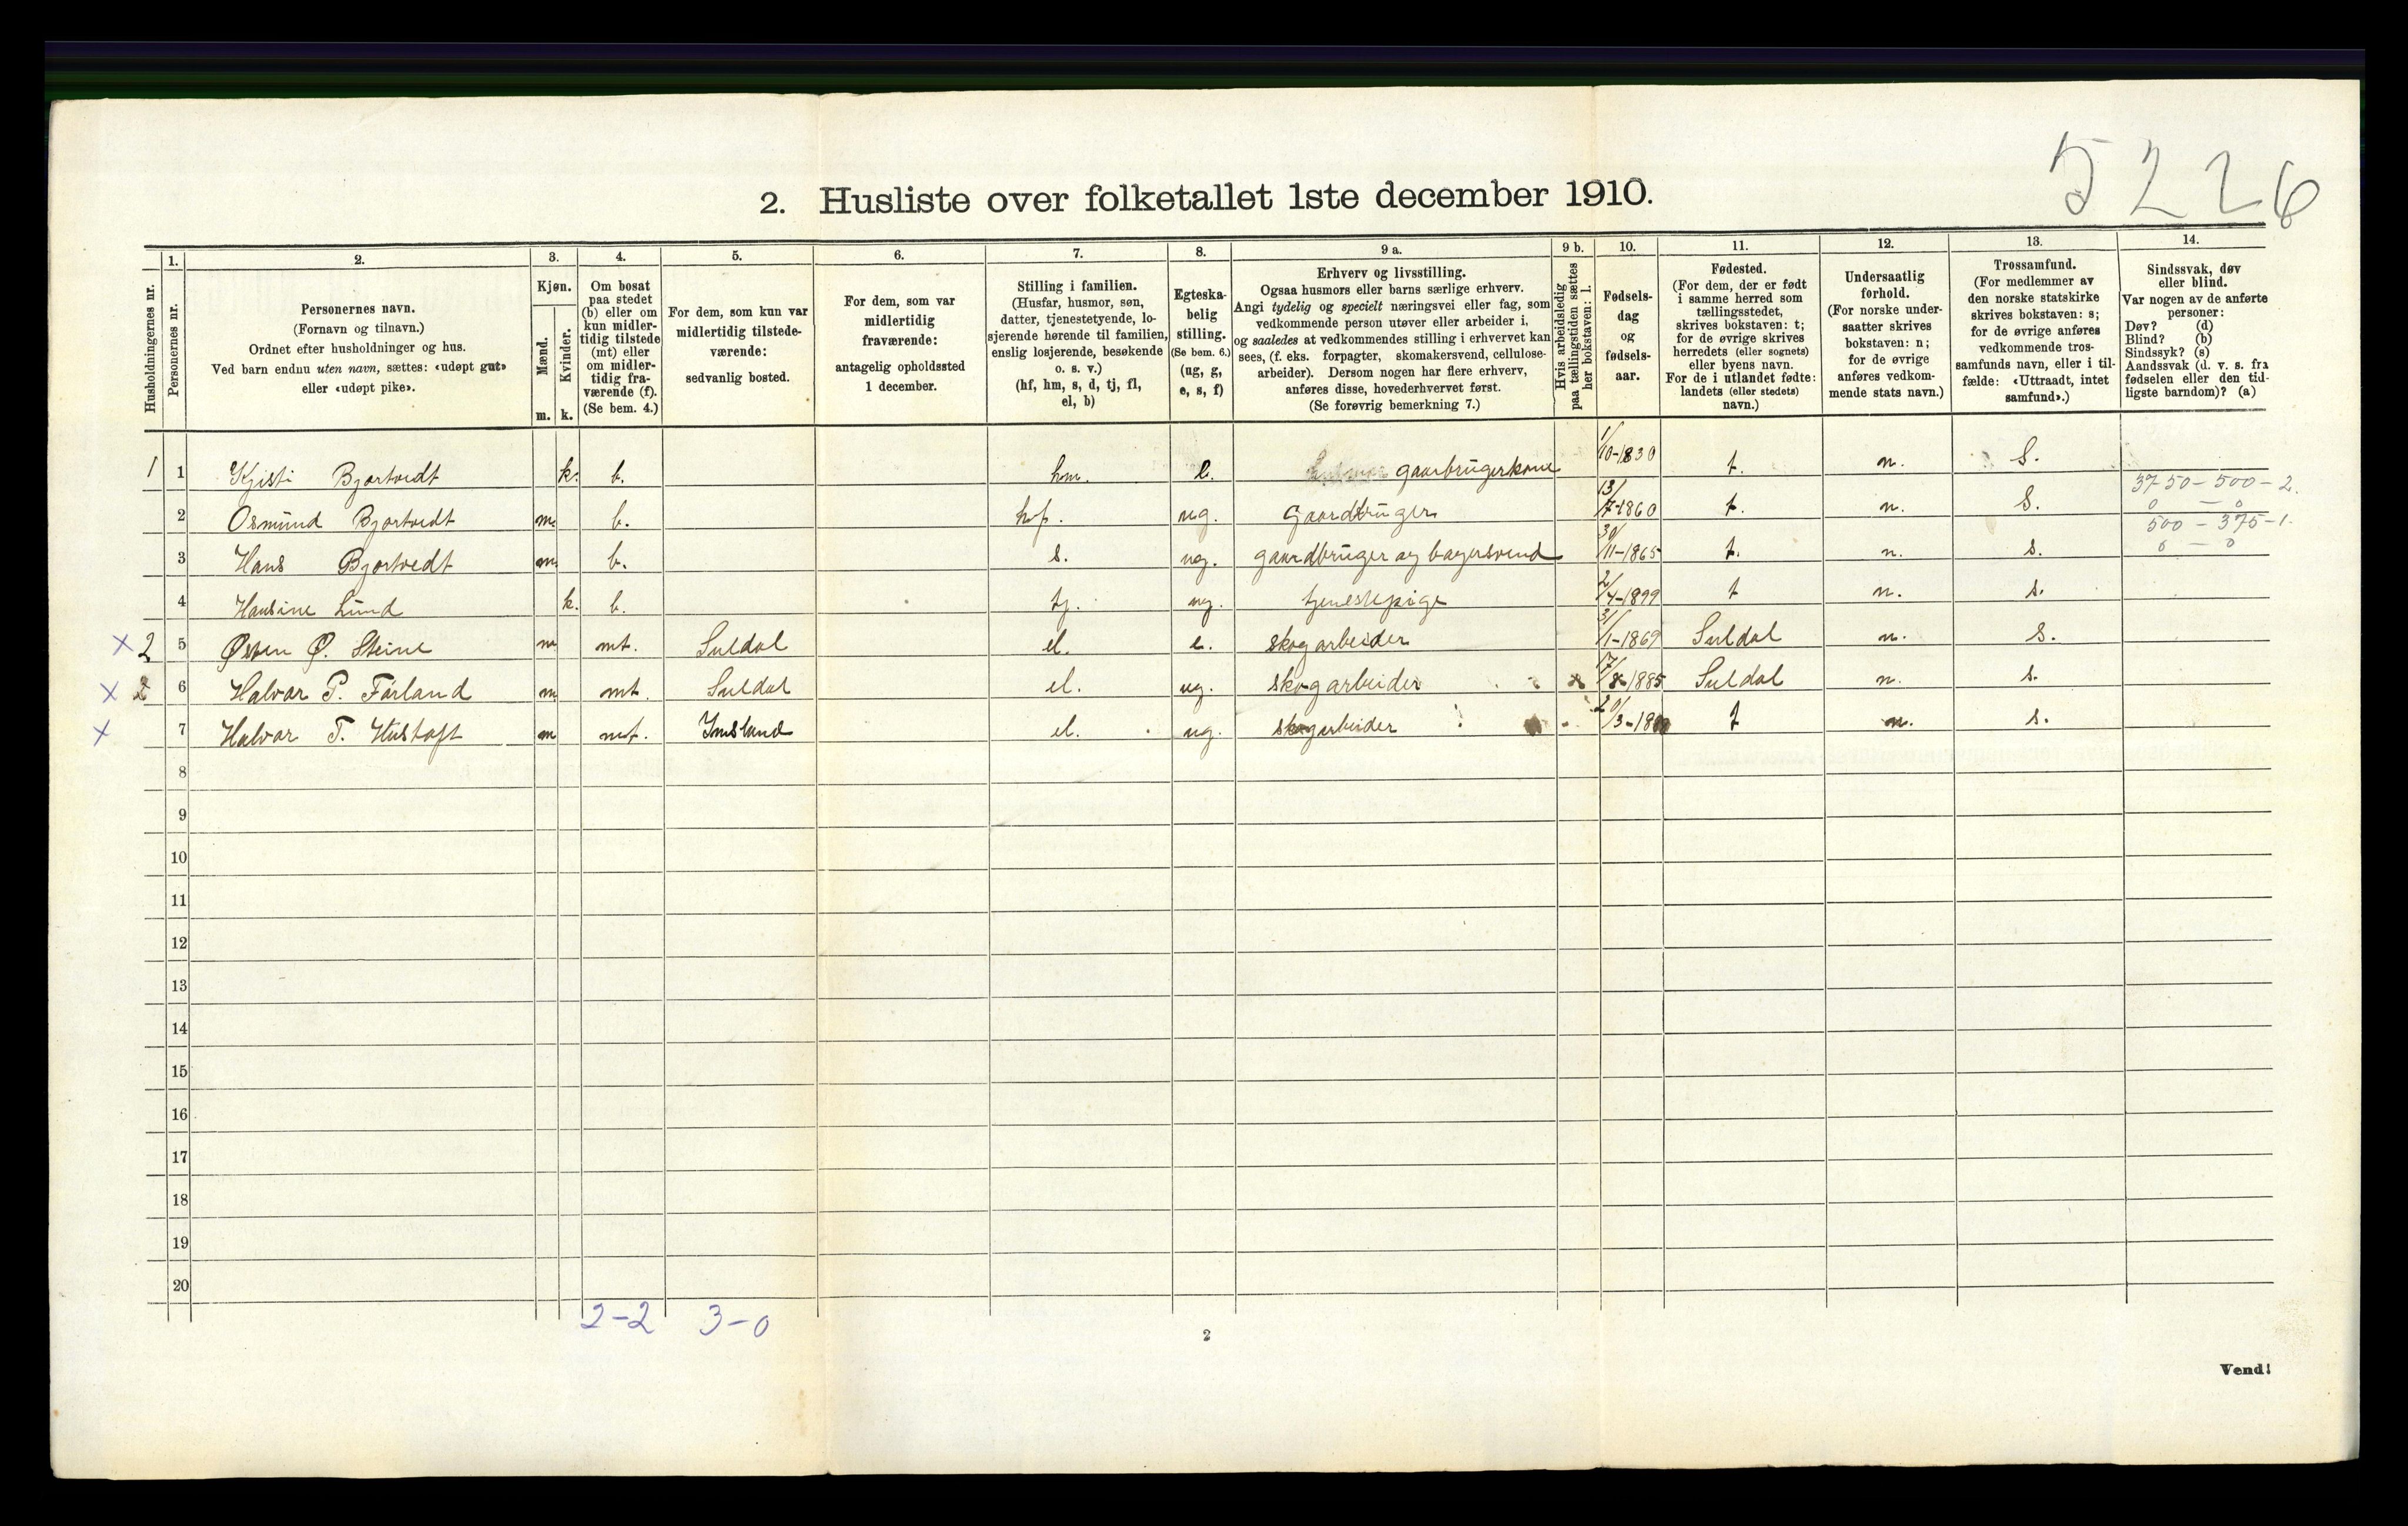 5226
2. Husliste over folketallet 1ste december 1910.
Husholdningernes nr.
1.
Personernes nr.
2.
Personernes navn.
(Fornavn og tilnavn.)
Ordnet efter husholdninger og hus.
Ved barn endnu uten navn, sættes: «udøpt gut»
eller «udøpt pike».
3.
Kjøn.
Mænd.
Kvinder.
m. k.
4.
Om bosat
paa stedet
(b) eller om
kun midler-
tidig tilstede
(mt) eller
om midler-
tidig fra-
værende (f).
(Se bem. 4.)
5.
For dem, som kun var
midlertidig tilstede-
værende:
sedvanlig bosted.
6.
For dem, som var
midlertidig
fraværende:
antagelig opholdssted
1 december.
7.
Stilling i familien.
(Husfar, husmor, søn,
datter, tjenestetyende, lo-
sjerende hørende til familien,
enslig losjerende, besøkende
o. s. v.)
(hf, hm, s, d, tj, fl,
el, b)
8.
Egteska-
belig
stilling.
(Se bem. 6.)
(ug, g,
e, s, f)
9 a.
Erhverv og livsstilling.
Ogsaa husmors eller barns særlige erhverv.
Angi tydelig og specielt næringsvei eller fag, som
vedkommende person utøver eller arbeider i,
og saaledes at vedkommendes stilling i erhvervet kan
sees, (f. eks. forpagter, skomakersvend, cellulose-
arbeider). Dersom nogen har flere erhverv,
anføres disse, hovederhvervet først.
(Se forøvrig bemerkning 7.)
9 b.
Hvis arbeidsledig
paa tællingstiden sættes
her bokstaven: l.
10.
Fødsels-
dag
og
fødsels-
aar.
11.
Fødested.
(For dem, der er født
i samme herred som
tællingsstedet,
skrives bokstaven: t;
for de øvrige skrives
herredets (eller sognets)
eller byens navn.
For de i utlandet fødte:
landets (eller stedets)
navn.)
12.
Undersaatlig
forhold.
(For norske under-
saatter skrives
bokstaven: n;
for de øvrige
anføres vedkom-
mende stats navn.)
13.
Trossamfund.
(For medlemmer av
den norske statskirke
skrives bokstaven: s;
for de øvrige anføres
vedkommende tros-
samfunds navn, eller i til-
fælde: «Uttraadt, intet
samfund».)
14.
Sindssvak, døv
eller blind.
Var nogen av de anførte
personer:
Døv? (d)
Blind? (b)
Sindssyk? (s)
Aandssvak (d. v. s. fra
fødselen eller den tid-
ligste barndom)? (a)
1 1 Kjisti Bjortvedt k. b. hm. e. gaarbrugerkone 1/10-1830 t. n. S.
2 Osmund Bjortvedt m. b. hf. ug. Gaardbruger 13/7-1860 t. n. S. 3750-500-2. 0 - 0
3 Hans Bjortvedt m. b. s. ug. gaardbruger og bagersvend 30/11-1865 t. n. s. 500-375-1. 0 - 0
4 Hansine Lund k. b. tj. ug. tjenestepige 2/4-1899 t n. s.
x 2 5 Østen Ø. Steine m mt. Suldal el. e. skogarbeider 31/1-1869 Suldal n. S.
x 2 6 Halvor P. Førland m mt. Suldal el. ug. skogarbeider x 17/8-1885 Suldal n. s.
x 7 Halvor T. Hustoft m mt. Imsland el. ug. skogarbeider 20/3- t n. s.
8
9
10
11
12
13
14
15
16
17
18
19
20
2-2 3-0
2
Vend!